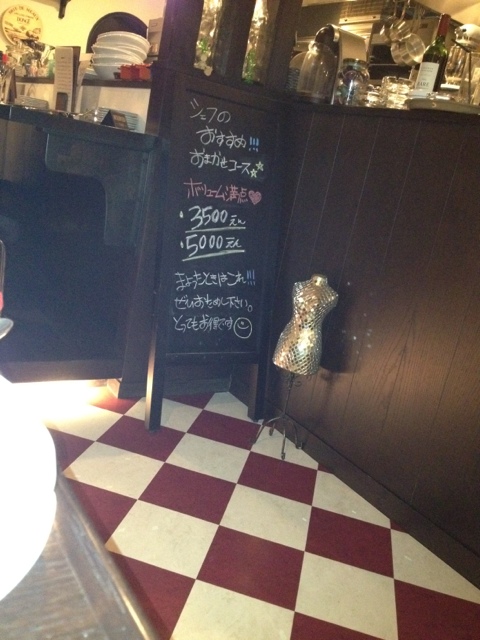 シェフの
おすすめ!!!
おまかせコース☆☆
ボリューム満点♡
・3500えん
・5000えん
まよったときはこれ!!!
ぜひおためし下さい。
とってもお得です☺